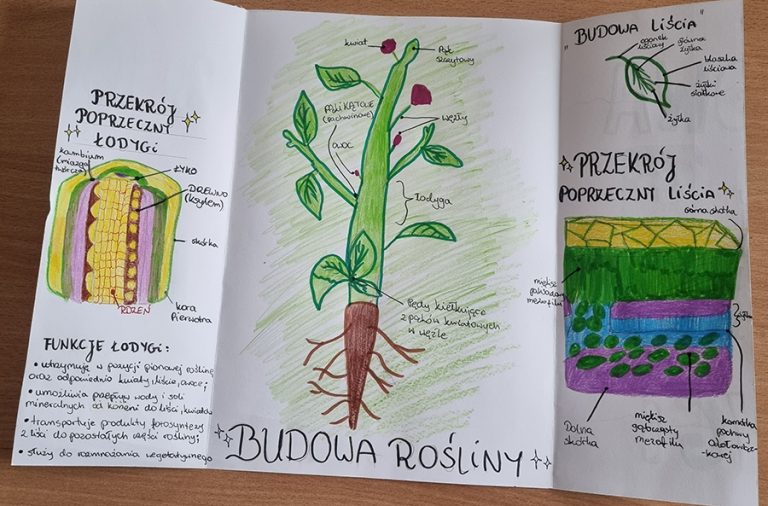 PRZEKRÓJ
POPRZECZNY
ŁODYGI
kambium
(miazga
twórcza)
ŁYKO
DREWNO
(ksylem)
skórka
kora
pierwotna
RDZEŃ
FUNKCJE ŁODYGI:
• utrzymują w pozycji pionowej roślinę
oraz odpowiednio kwiaty, liście, owoce;
• umożliwia przepływ wody i soli
mineralnych od korzeni do liści, kwiatów
• transportuje produkty fotosyntezy
z liści do pozostałych części rośliny;
• służy do rozmnażania wegetatywnego
kwiat
Pąk
szczytowy
PĄKI KĄTOWE
(pachwinowe)
węzły
owoc
łodyga
Pędy kiełkujące
z pąków kwiatowych
w węźle
BUDOWA ROŚLINY
"BUDOWA LIŚCIA"
ogonek
liściowy
główna
żyłka
blaszka
liściowa
żyłki
siatkowe
żyłka
PRZEKRÓJ
POPRZECZNY LIŚCIA
górna skórka
miękisz
palisadowy
mezofilu
żyłka
Dolna
skórka
miękisz
gąbczasty
mezofilu
komórka
pochwy